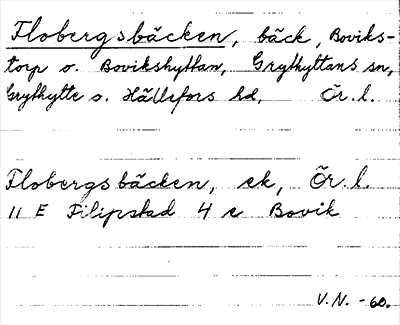 Flobergsbäcken, bäck, Boviks-
torp o. Bovikshyttan, Grythyttans sn,
Grythytte o. Hällefors hd, Ör. l.
Flobergsbäcken, ek, Ör. l.
11 E Filipstad 4 e Bovik
V.N. -60.